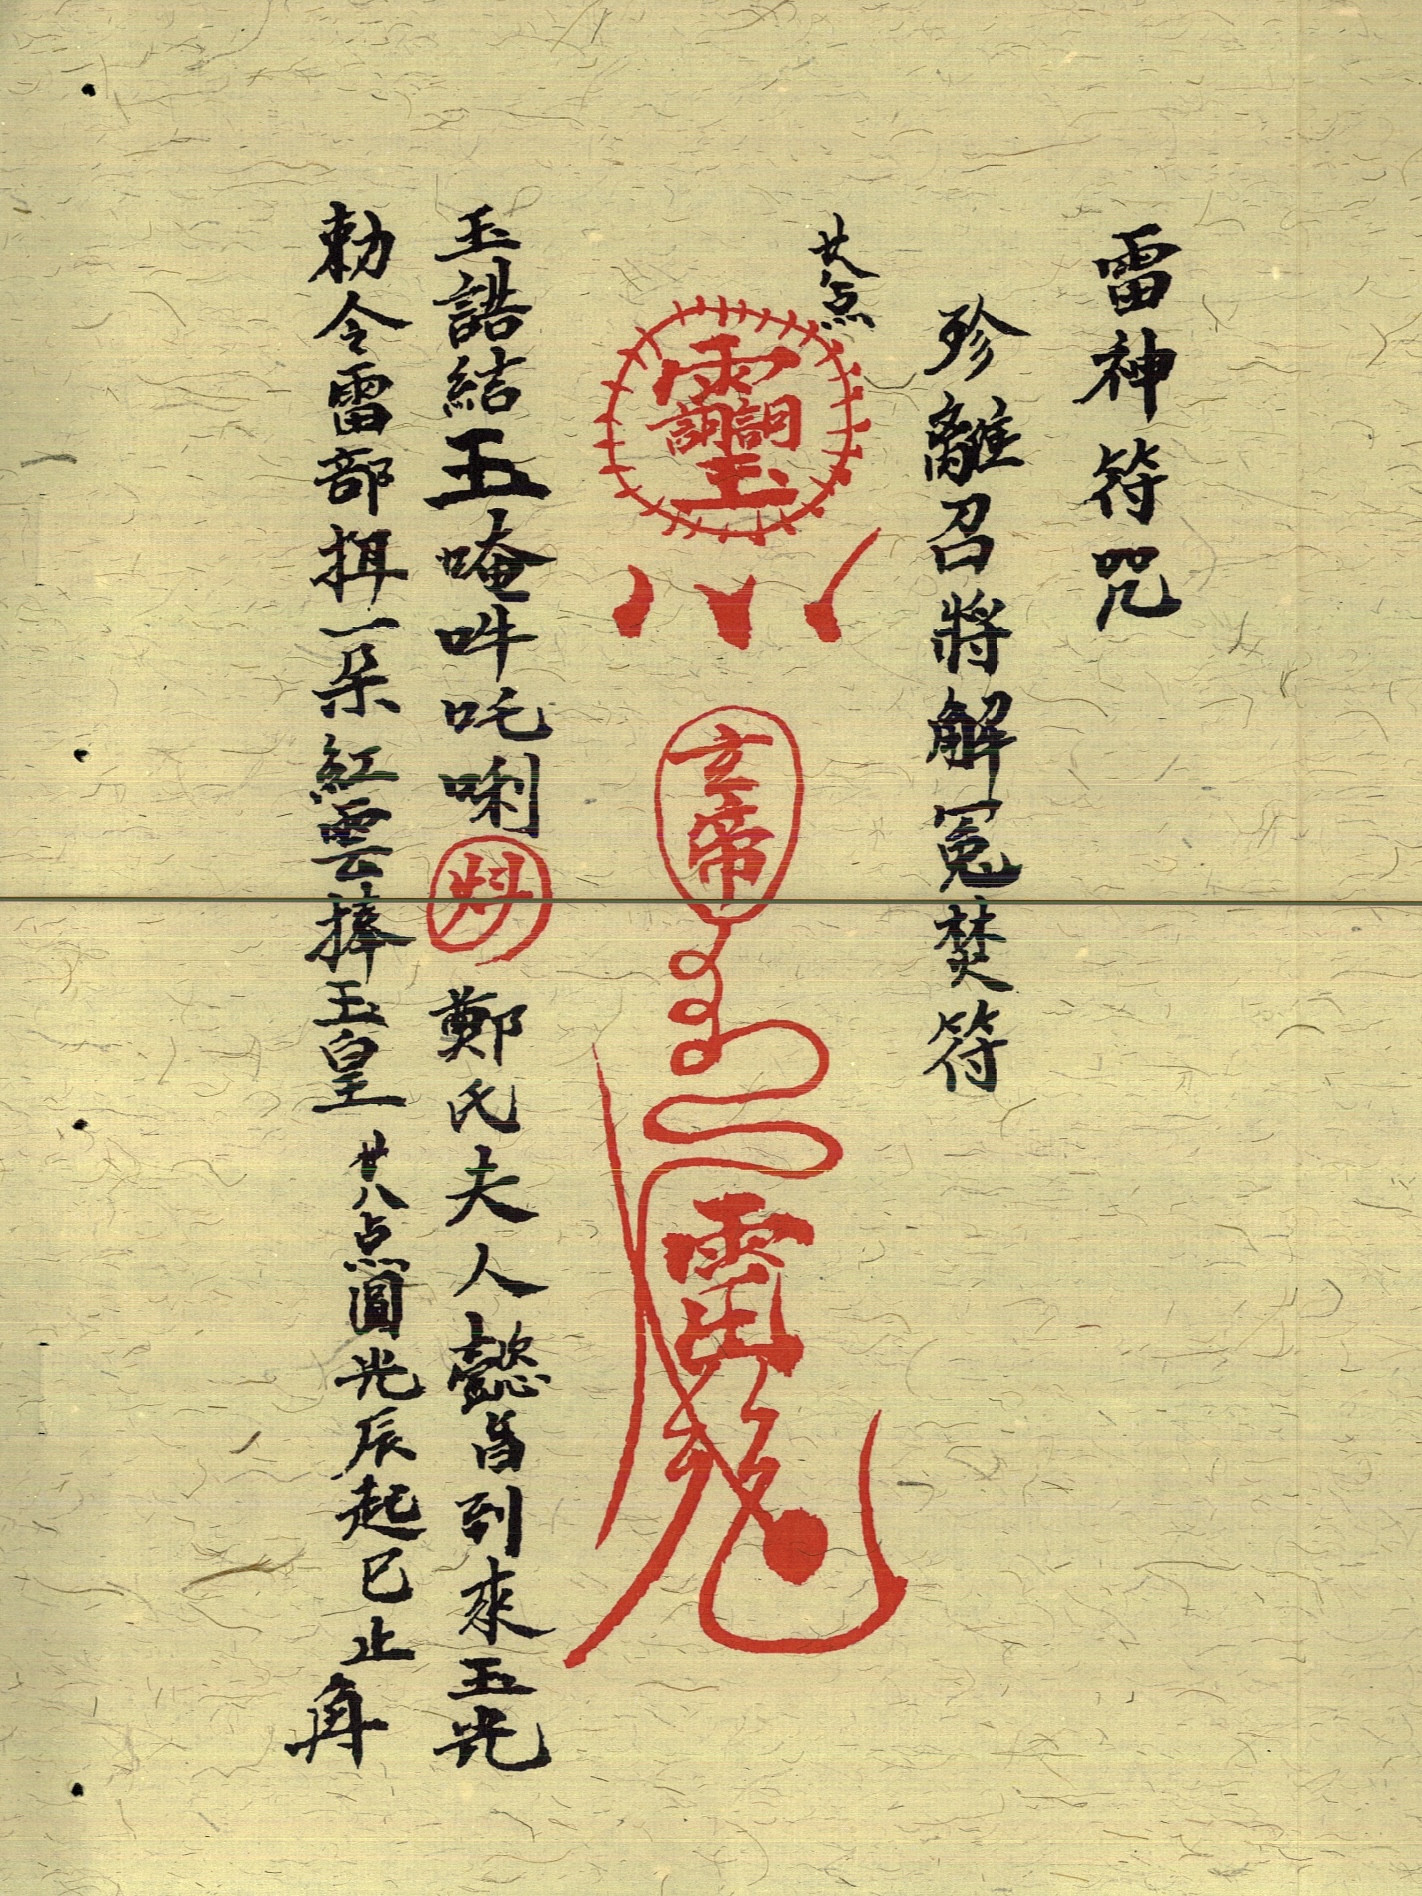 雷神符咒
殄離召將解冤焚符
廿八点
玄帝
玉誥結玉唵吽吒唎 鄭氏夫人懿旨到來玉光
勅令雷部揖一朵紅雲捧玉皇 廿八点圓光辰起巳止角